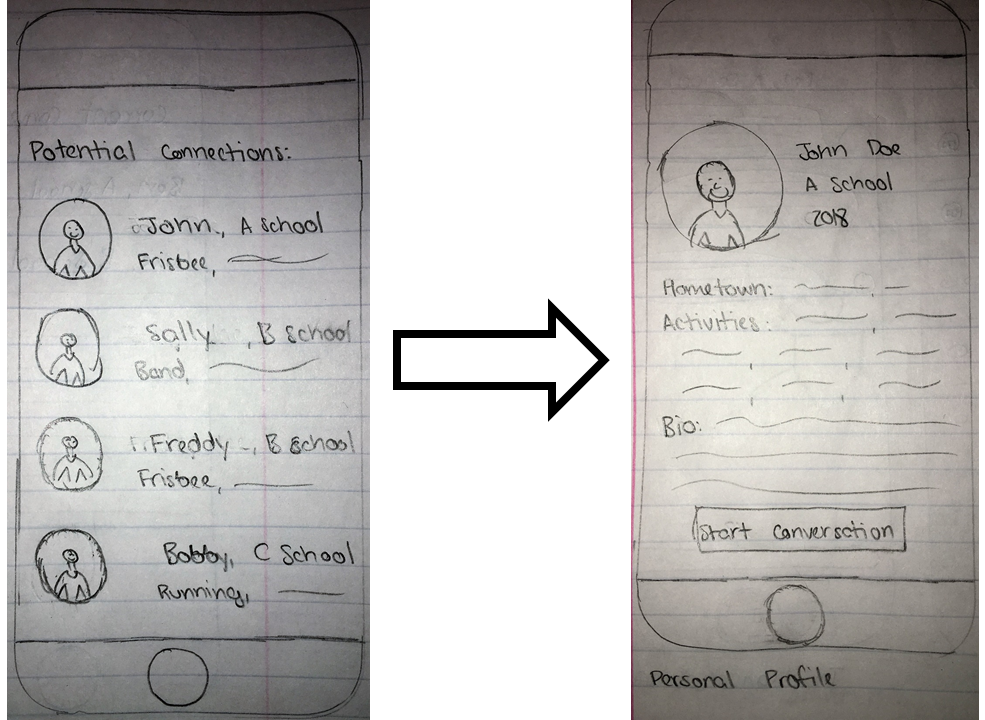 Potential Connections:
John, A School
Frisbee,
Sally, B School
Band,
Freddy, B School
Frisbee,
Bobby, C School
Running,
John Doe
A School
2018
Hometown:
Activities:
Bio:
Start Conversation
Personal Profile